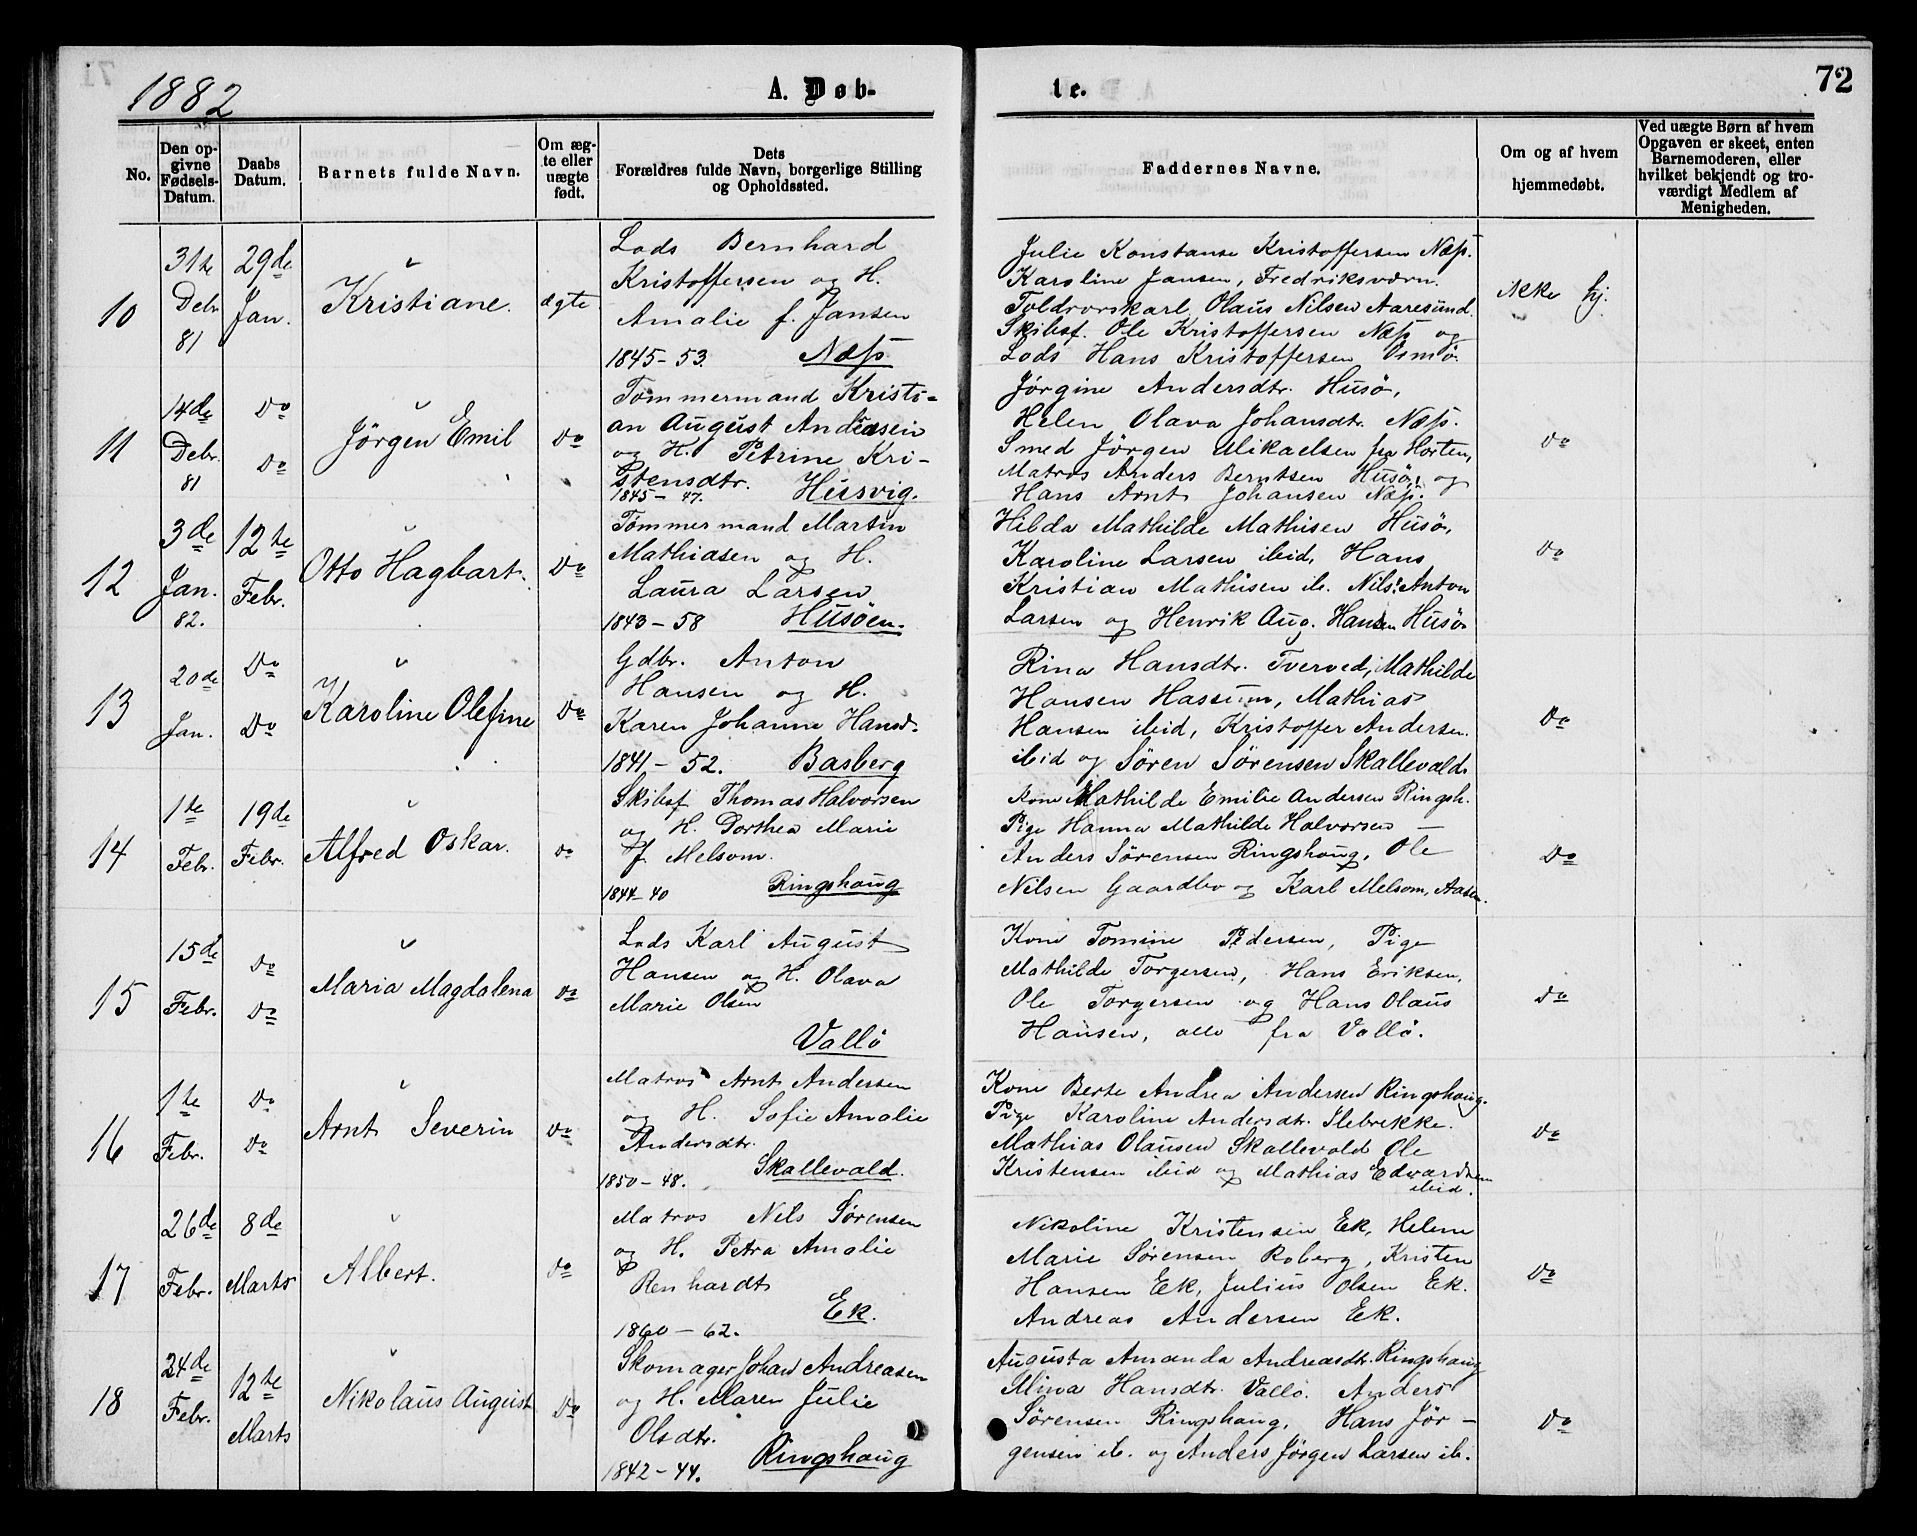 1882
A. Døb-
te.
72
No.
Den op-
givne
Fødsels-
Datum.
Daabs
Datum.
Barnets fulde Navn.
Om æg-
te eller
uægte
født.
Dets
Forældres fulde Navn, borgerlige Stilling
og Opholdssted.
Faddernes Navne.
Om og af hvem
hjemmedøbt.
Ved uægte Børn af hvem
Opgaven er skeet, enten
Barnemoderen, eller
hvilket bekjendt og tro-
værdigt Medlem af
Menigheden.
10
31te
Debr
81
29de
Jan.
Kristiane.
ægte
Lods Bernhard
Kristoffersen og H.
Amalie f. Jansen
1845-53. Næss
Julie Konstanse Kristoffersen Næss.
Karoline Jansen, Fredriksværn.
Toldrorskarl Olaus Nilsen Aaresund.
Skibsf. Ole Kristoffersen Næss og
Lods Hans Kristoffersen Ormø.
Ikke hj.
11
14de
Debr.
81
Do
Do
Jörgen Emil
Do
Tømmermand Kristi=
an August Andersen
og H. Petrine Kri-
stensdtr.
1845-47. Husvig.
Jørgine Andersdtr. Husö,
Helen Olava Johansdtr. Næss.
Smed Jörgen Mikaelsen fra Horten,
Matros Anders Berntsen Husö, og
Hans Arnt Johansen Næss.
Do
12
3de
Jan.
82.
12te
Febr.
Otto Hagbart.
Do
Tømmermand Martin
Mathiasen og H.
Laura Larsen
1843-58 Husöen.
Hilda Mathilde Mathisen Husö,
Karoline Larsen ibid, Hans
Kristian Mathisen ib. Nils Anton
Larsen og Henrik Aug. Hansen Husö
Do
13
20de
Jan.
Do
Do
Karoline Olefine
Do
Gdbr. Anton
Hansen og H.
Karen Johanne Hansd.
1841-52. Basberg
Rina Hansdtr. Tverved, Mathilde
Hansen Hassum, Mathias
Hansen ibid, Kristoffer Andersen
ibid og Sören Sörensen Skallevald.
Do
14
1te
Febr.
19de
Febr.
Alfred Oskar.
Do
Skibsf Thomas Halvorsen
og H. Dorthea Marie
f Melsom.
1844-40 Ringshaug
Kone Mathilde Emilie Andersen Ringsh.
Pige Hanna Mathilde Halvorsen —
Anders Sörensen Ringshaug, Ole
Nilsen Gaardbo og Karl Melsom, Aasen.
Do
15
15de
Febr.
Do
Do
Maria Magdalena
Do
Lods Karl August
Hansen og H. Olava
Marie Olsen
Vallö
Kone Tomine Pedersen, Pige
Mathilde Torgersen, Hans Eriksen,
Ole Torgersen og Hans Olaus
Hansen, alle fra Vallö.
Do
16
1te
Febr.
Do
Do
Arnt Severin
Do
Matros Arnt Andersen
og H. Sofie Amalie
Andersdtr.
1850-48. Skallevald.
Kone Berte Andrea Andersen Ringshaug.
Pige Karoline Andersdtr. Slebrekke.
Mathias Olausen Skallevald Ole
Kristensen ibid og Mathias Edvardsen
ibid.
Do
17
26de
Febr.
8de
Marts
Albert.
Do
Matros Nels Sörensen
og H. Petra Amalie
Renhardt
1860-62. Ek.
Nikoline Kristensen Ek, Helene
Marie Sörensen Roberg, Kristen
Hansen Ek, Julius Olsen Ek.
Andreas Andersen Ek.
Do
18
24de
Febr.
12te
Marts
Nikolaus August
Do
Skomager Johan Andreasen
og H. Maren Julie
Olsdtr.
1842-44. Ringshaug
Augusta Amanda Andreasdtr. Ringshaug
Mina Hansdtr. Vallö. Anders
Sörensen Ringshaug, Hans Jör-
gensen ib. og Anders Jörgen Larsen ib.
Do